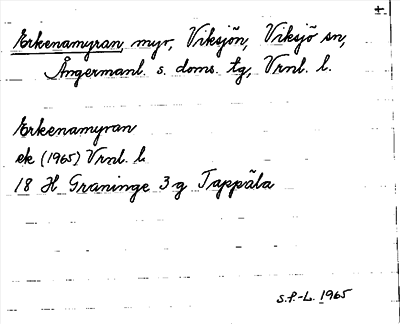 Erkenamyran, myr, Viksjön, Viksjö sn,
Ångermanl. s. doms. tg, Vrnl. l.
Erkenamyran
ek (1965) Vrnl. l
18 H Graninge 3 g Tappäla
S.F-L. 1965